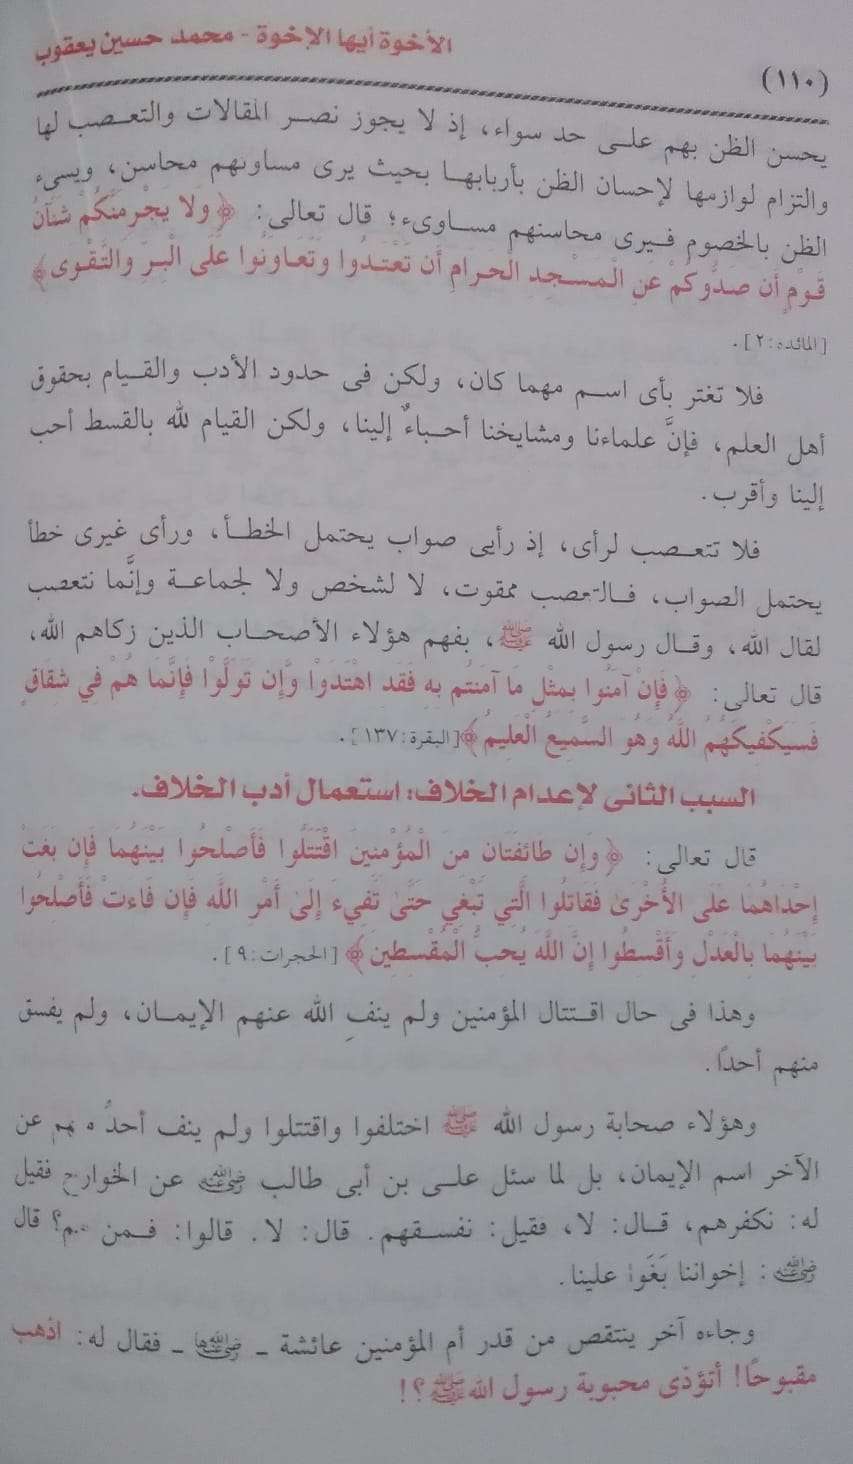 الأخوة أيها الإخوة - محمد حسين يعقوب
(١١٠)
يحسن الظن بهم على حد سواء، إذ لا يجوز نصر المقالات والتعصب لها
والتزام لوازمها لإحسان الظن بأربابها بحيث يرى مساوئهم محاسن، ويسىء
الظن بالخصوم فيرى محاسنهم مساوىء؛ قال تعالى: ﴿ وَلا يَجْرِمَنَّكُمْ شَنَآنُ
قَوْمٍ أَن صَدُّوكُمْ عَنِ الْمَسْجِدِ الْحَرَامِ أَن تَعْتَدُوا وَتَعَاوَنُوا عَلَى الْبِرِّ وَالتَّقْوَى﴾
[المائدة: ٢].
فلا تغتر بأى اسم مهما كان، ولكن فى حدود الأدب والقيام بحقوق
أهل العلم، فإنَّ علماءنا ومشايخنا أحباءٌ إلينا، ولكن القيام لله بالقسط أحب
إلينا وأقرب.
فلا تتعصب لرأى، إذ رأيى صواب يحتمل الخطأ، ورأى غيرى خطأ
يحتمل الصواب، فالتعصب ممقوت، لا لشخص ولا لجماعة وإنَّما نتعصب
لقال الله، وقال رسول الله ﷺ، بفهم هؤلاء الأصحاب الذين زكاهم الله،
قال تعالى: ﴿ فَإِنْ آمَنُوا بِمِثْلِ مَا آمَنتُم بِهِ فَقَدِ اهْتَدَوْا وَّإِن تَوَلَّوْا فَإِنَّمَا هُمْ فِي شِقَاقٍ
فَسَيَكْفِيكَهُمُ اللَّهُ وَهُوَ السَّمِيعُ الْعَلِيمُ ﴾[البقرة: ١٣٧].
السبب الثانى لإعدام الخلاف: استعمال أدب الخلاف.
قال تعالى: ﴿ وَإِن طَائِفَتَانِ مِنَ الْمُؤْمِنِينَ اقْتَتَلُوا فَأَصْلِحُوا بَيْنَهُمَا فَإِن بَغَتْ
إِحْدَاهُمَا عَلَى الأُخْرَىٰ فَقَاتِلُوا الَّتِي تَبْغِي حَتَّىٰ تَفِيءَ إِلَىٰ أَمْرِ اللَّهِ فَإِن فَاءَتْ فَأَصْلِحُوا
بَيْنَهُمَا بِالْعَدْلِ وَأَقْسِطُوا إِنَّ اللَّهَ يُحِبُّ الْمُقْسِطِينَ ﴾ [الحجرات: ٩].
وهذا فى حال اقتتال المؤمنين ولم ينفِ الله عنهم الإيمان، ولم يفسق
منهم أحدًا.
وهؤلاء صحابة رسول الله ﷺ اختلفوا واقتتلوا ولم ينف أحدٌ منهم عن
الآخر اسم الإيمان، بل لما سئل على بن أبى طالب رضي الله عنه عن الخوارج فقيل
له: نكفرهم، قال: لا، فقيل: نفسقهم. قال: لا. قالوا: فمن هم؟ قال
رضي الله عنه: إخواننا بَغَوا علينا.
وجاءه آخر ينتقص من قدر أم المؤمنين عائشة - رضي الله عنها - فقال له: اذهب
مقبوحًا! أتؤذى محبوبة رسول الله ﷺ؟!